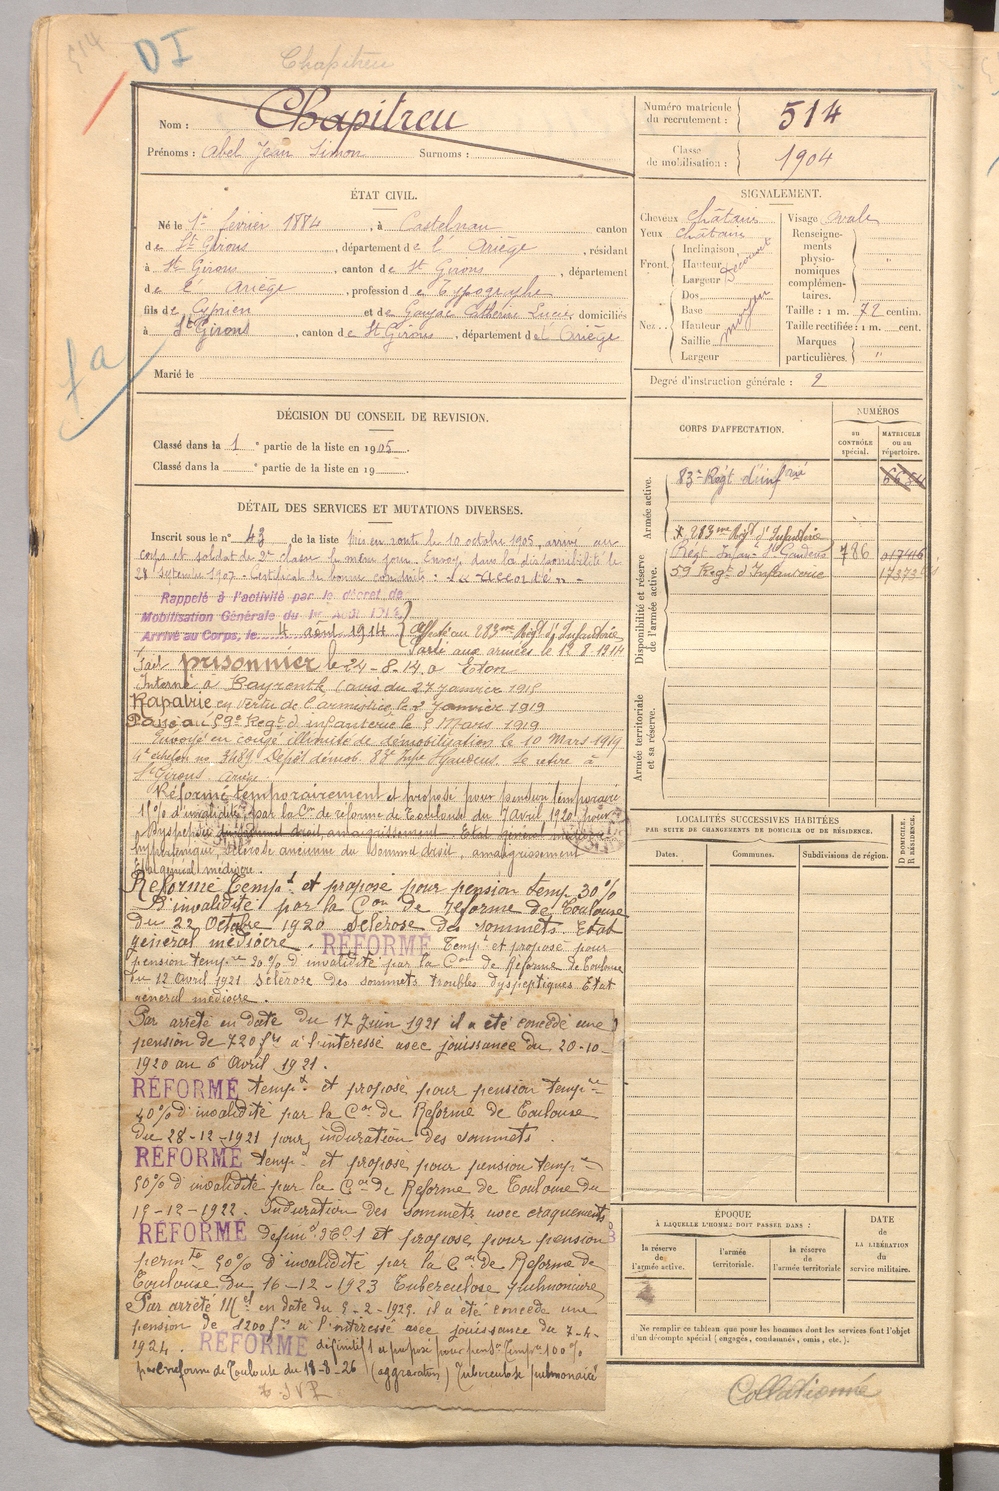 514
DI
Chapitreu
Nom : Chapitreu
Prénoms : Abel Jean Simon Surnoms :
Numéro matricule
du recrutement : 514
Classe
de mobilisation : 1904
ÉTAT CIVIL.
Né le 1er février 1884, à Castelnau canton
de St Girons, département de l'Ariège, résidant
à St Girons, canton de St Girons, département
de l'Ariège, profession de Typographe
fils de Cyprien et de Goujac Catherine Lucie domiciliés
à St Girons, canton de St Girons, département de l'Ariège
Marié le
fa
SIGNALEMENT.
Cheveux châtain
Yeux châtain
Front. Inclinaison
Hauteur
Largeur
Découvert
Nez. Dos
Base
Hauteur
Saillie
Largeur
moyen
Visage ovale
Renseigne-
ments
physio-
nomiques
complémen-
taires. "
Taille : 1 m. 72 centim.
Taille rectifiée : 1 m. cent.
Marques
particulières. "
Degré d'instruction générale : 2
DÉCISION DU CONSEIL DE REVISION.
Classé dans la 1e partie de la liste en 1905.
Classé dans la e partie de la liste en 19 .
CORPS D'AFFECTATION.
NUMÉROS
au
CONTRÔLE
spécial.
MATRICULE
ou au
répertoire.
Armée active.
83e Régt d'infrie 6654
Disponibilité et réserve
de l'armée active.
283me Régt d'Infanterie
Régt Infan. St Gaudens 786 017416
59 Régt d'Infanterie
Armée territoriale
et sa réserve.
DÉTAIL DES SERVICES ET MUTATIONS DIVERSES.
Inscrit sous le n° 43 de la liste Mis en route le 10 octobre 1905, arrivé au
corps et soldat de 2e classe le même jour. Envoyé dans la disponibilité le
28 septembre 1907. Certificat de bonne conduite : "Accordé"
Rappelé à l'activité par le décret de
Mobilisation Générale du 1er Août 1914
Arrivé au Corps, le 4 août 1914 Affecté au 283me Régt d'Infanterie
Parti aux armées le 12 8 1914
Fait prisonnier le 24-8-14 à Eton
Interné à Bayreuth (avis du 27 janvier 1915
Rapatrié en vertu de l'armistice le 2 janvier 1919
Passé au 59e Régt d'infanterie le 5 Mars 1919
Envoyé en congé illimité de démobilisation le 10 Mars 1919
4e échelon no 3489. Dépôt démob. 83e Infie St Gaudens. Se retire à
St Girons. Ariège.
Réformé temporairement et proposé pour pension temporaire
15% d'invalidité, par la Con de réforme de Toulouse du 7 avril 1920 pour
Dyspepsie
hypersthénique, sclérose ancienne du sommet droit, amaigrissement
Etat général médiocre.
Réformé Tempt et proposé pour pension temp. 30%
d'invalidité par la Con de réforme de Toulouse
du 22 Octobre 1920 sclérose des sommets. Etat
général médiocre. RÉFORMÉ Tempt et proposé pour
pension tempre 20% d'invalidité par la Con de Réforme de Toulouse
du 12 Avril 1921 sclérose des sommets troubles dyspeptiques Etat
général médiocre.
Par arrêté en date du 17 Juin 1921 il a été concédé une
pension de 720 frs à l'intéressé avec jouissance du 20-10-
1920 au 6 Avril 1921.
RÉFORMÉ tempt et proposé pour pension tempre
40% d'invalidité par la Con de Réforme de Toulouse
du 28-12-1921 pour induration des sommets.
RÉFORMÉ tempt et proposé pour pension tempre
50% d'invalidité par la Con de Réforme de Toulouse du
15-12-1922. Induration des sommets avec craquements
RÉFORMÉ définif N°1 et proposé pour pension
permte 50% d'invalidité par la Con de Réforme de
Toulouse du 16-12-1923 Tuberculose pulmonaire
Par arrêté Mel en date du 5-2-1925. il a été concédé une
pension de 1200 frs à l'intéressé avec jouissance du 7-4-
1924. RÉFORMÉ définitif 1 et proposé pour pens. Temp. 100%
par Con réforme de Toulouse du 18-8-26 (aggravation) Tuberculose pulmonaire
LOCALITÉS SUCCESSIVES HABITÉES
PAR SUITE DE CHANGEMENTS DE DOMICILE OU DE RÉSIDENCE.
Dates. Communes. Subdivisions de région.
D DOMICILE.
R RÉSIDENCE.
ÉPOQUE
À LAQUELLE L'HOMME DOIT PASSER DANS :
la réserve
de
l'armée active.
l'armée
territoriale.
la réserve
de
l'armée territoriale
DATE
de
LA LIBÉRATION
du
service militaire.
Ne remplir ce tableau que pour les hommes dont les services font l'objet
d'un décompte spécial (engagés, condamnés, omis, etc.).
Collationné